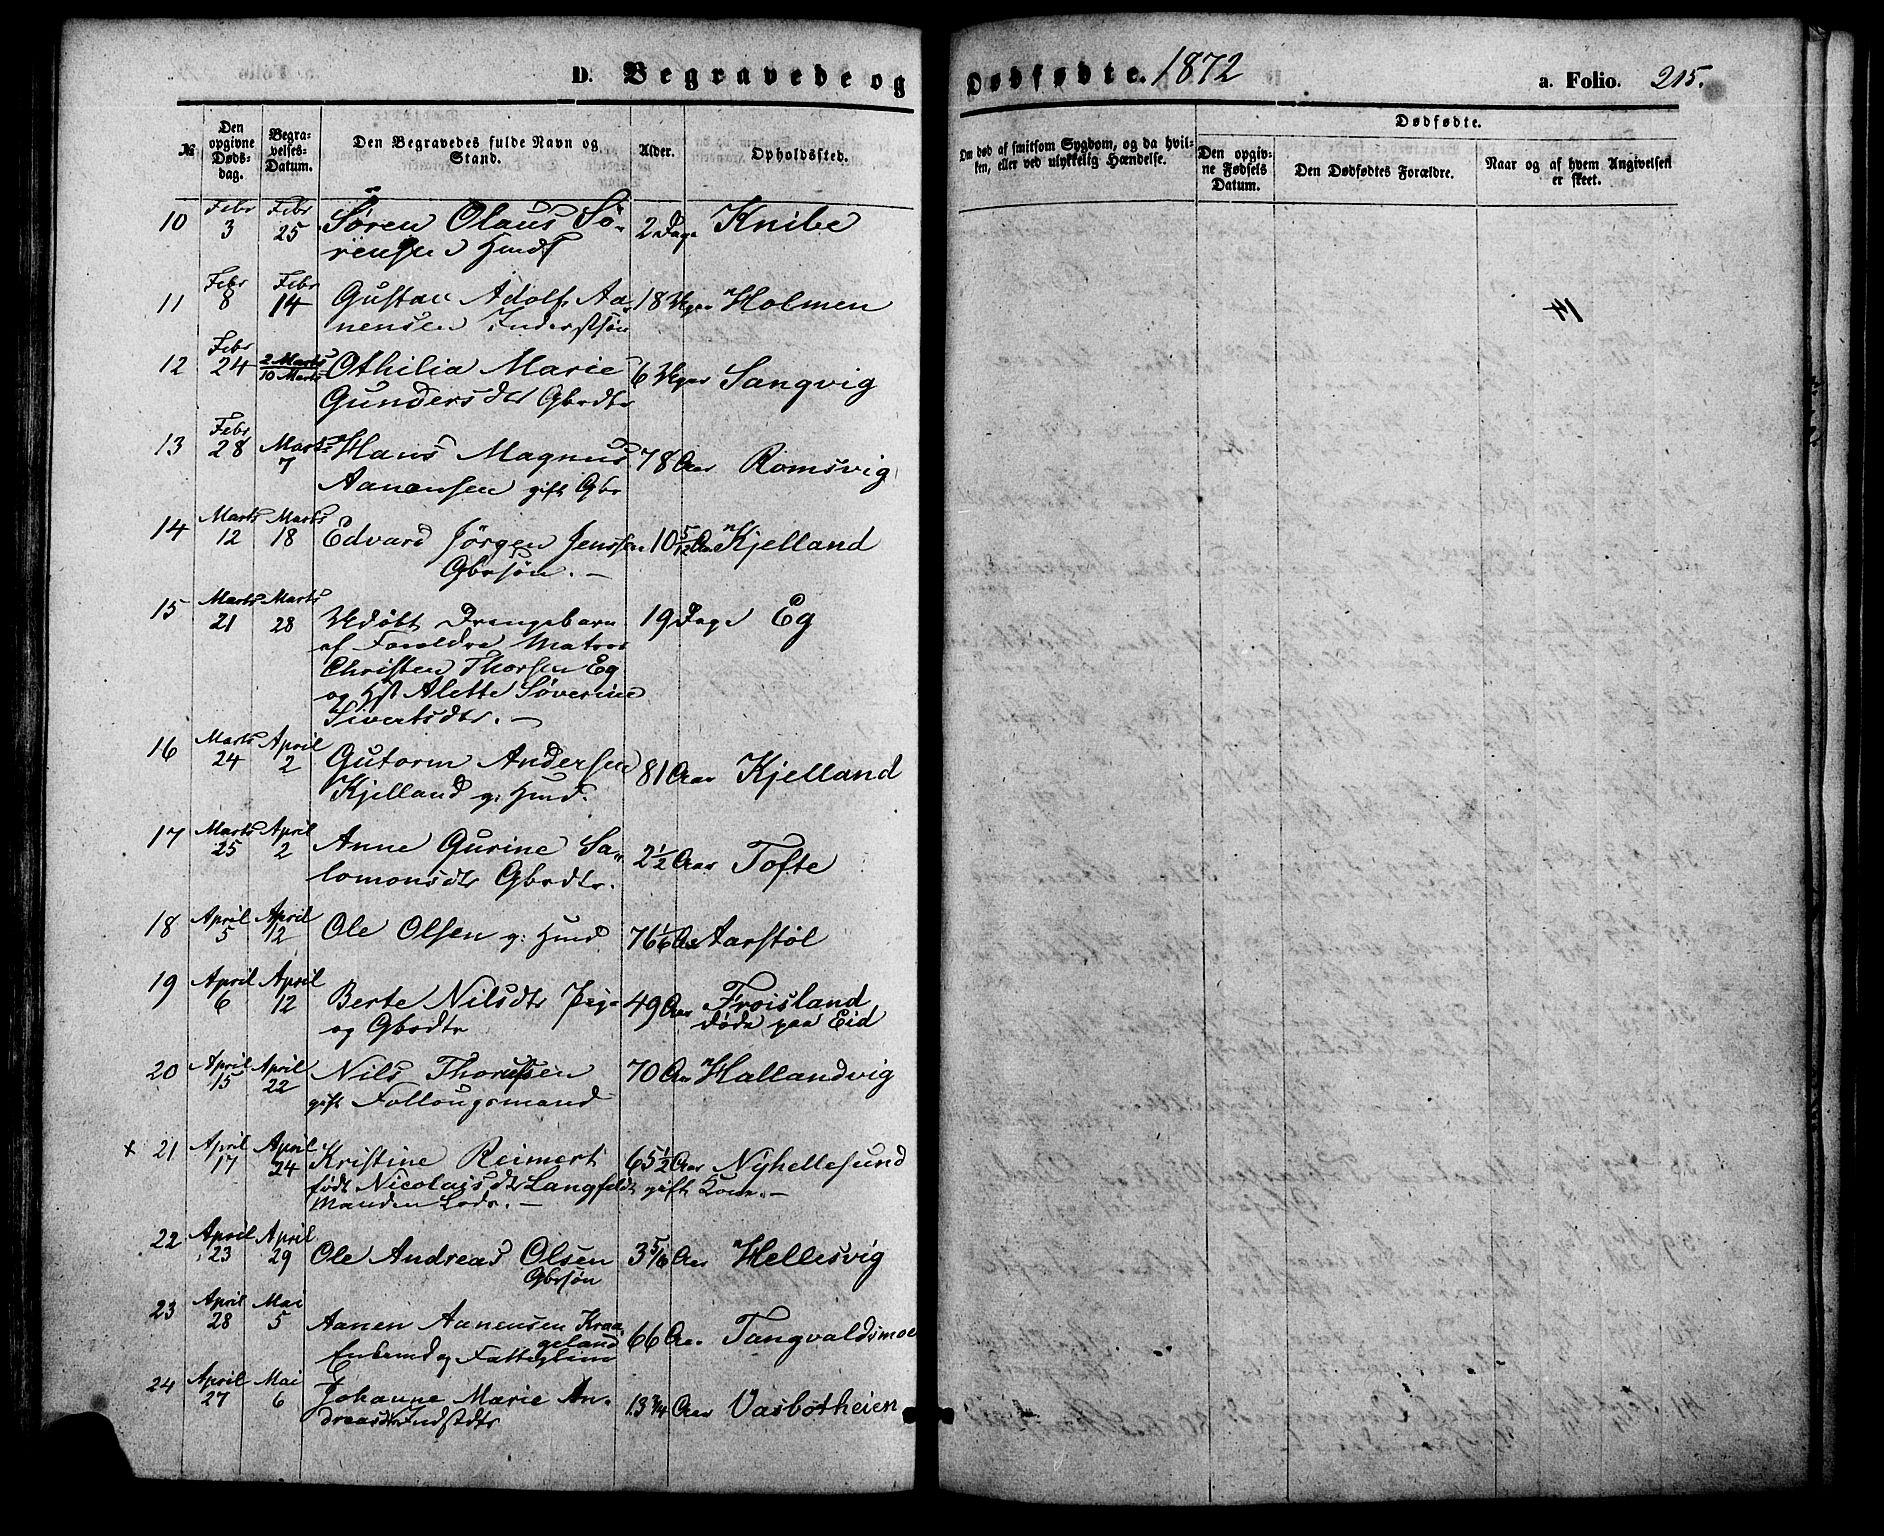 D. Begravede og
Dødfødte. 1872
a. Folio. 215.
№
Den opgivne Døds-dag.
Begra-velses-Datum.
Den Begravedes fulde Navn og Stand.
Alder.
Opholdssted.
Om død af smitsom Sygdom, og da hvil-
ken, eller ved ulykkelig Hændelse.
Dødfødte.
Den opgiv-ne Fødsels Datum.
Den Dødfødtes Forældre.
Naar og af hvem Angivelsen er skeet.
10 Febr 3 Febr 25 Søren Olaus Sö- 2 Dage Knibe
rensen Hmds
11 Febr 8 Febr 14 Gustav Adolf Aa 18 Uger Holmen
nensen Inderstsøn
12 Febr 24 2 Marts 10 Marts Othilia Marie 6 Uger Sangvig
Gundersdtr Gbrdtr
13 Febr 28 Marts 7 Hans Magnus 78 Aar Romsvig
Aanensen gift Gbr
14 Marts 12 Marts 18 Edvard Jörgen Jenssen 10 5/12 Aar Kjelland
Gbrsön. —
15 Marts 21 Marts 28 Udöbt Drengebarn 19 Dage Eg
af Foreldre Matros
Christen Thorsen Eg
og Hst Alette Söverine
Sivertsdtr. —
16 Marts 24 April 2 Gutorm Andersen 81 Aar Kjelland
Kjelland g: Hmd.
17 Marts 25 April 2 Anne Gurine Sa- 2 1/2 Aar Tofte
lomonsdtr Gbrdtr.
18 April 5 April 12 Ole Olsen g: Hmd 76 1/6 Aar Aarstöl
19 April 6 April 12 Berte Nilsdtr Pige 49 Aar Froisland
og Gbrdtr döde paa Eid
20 April 15 April 22 Nils Thorussen 70 Aar Hallandvig
gift Follougsmand
× 21 April 17 April 24 Kristine Reimert 65 1/2 Aar Nyhellesund
födt Nicolaisdtr Langfeldt gift Kone. —
Manden Lods. —
22 April 23 April 29 Ole Andreas Olsen 3 5/6 Aar Hellesvig
Gbrsön
23 April 28 Mai 5 Aanen Aanensen Kraa 66 Aar Tangvaldsmoe
geland
Enkemd og Fatteglim
24 April 27 Mai 6 Johanne Marie An- 13 3/4 Aar Vasbotheien
dreasdtr Indstdtr